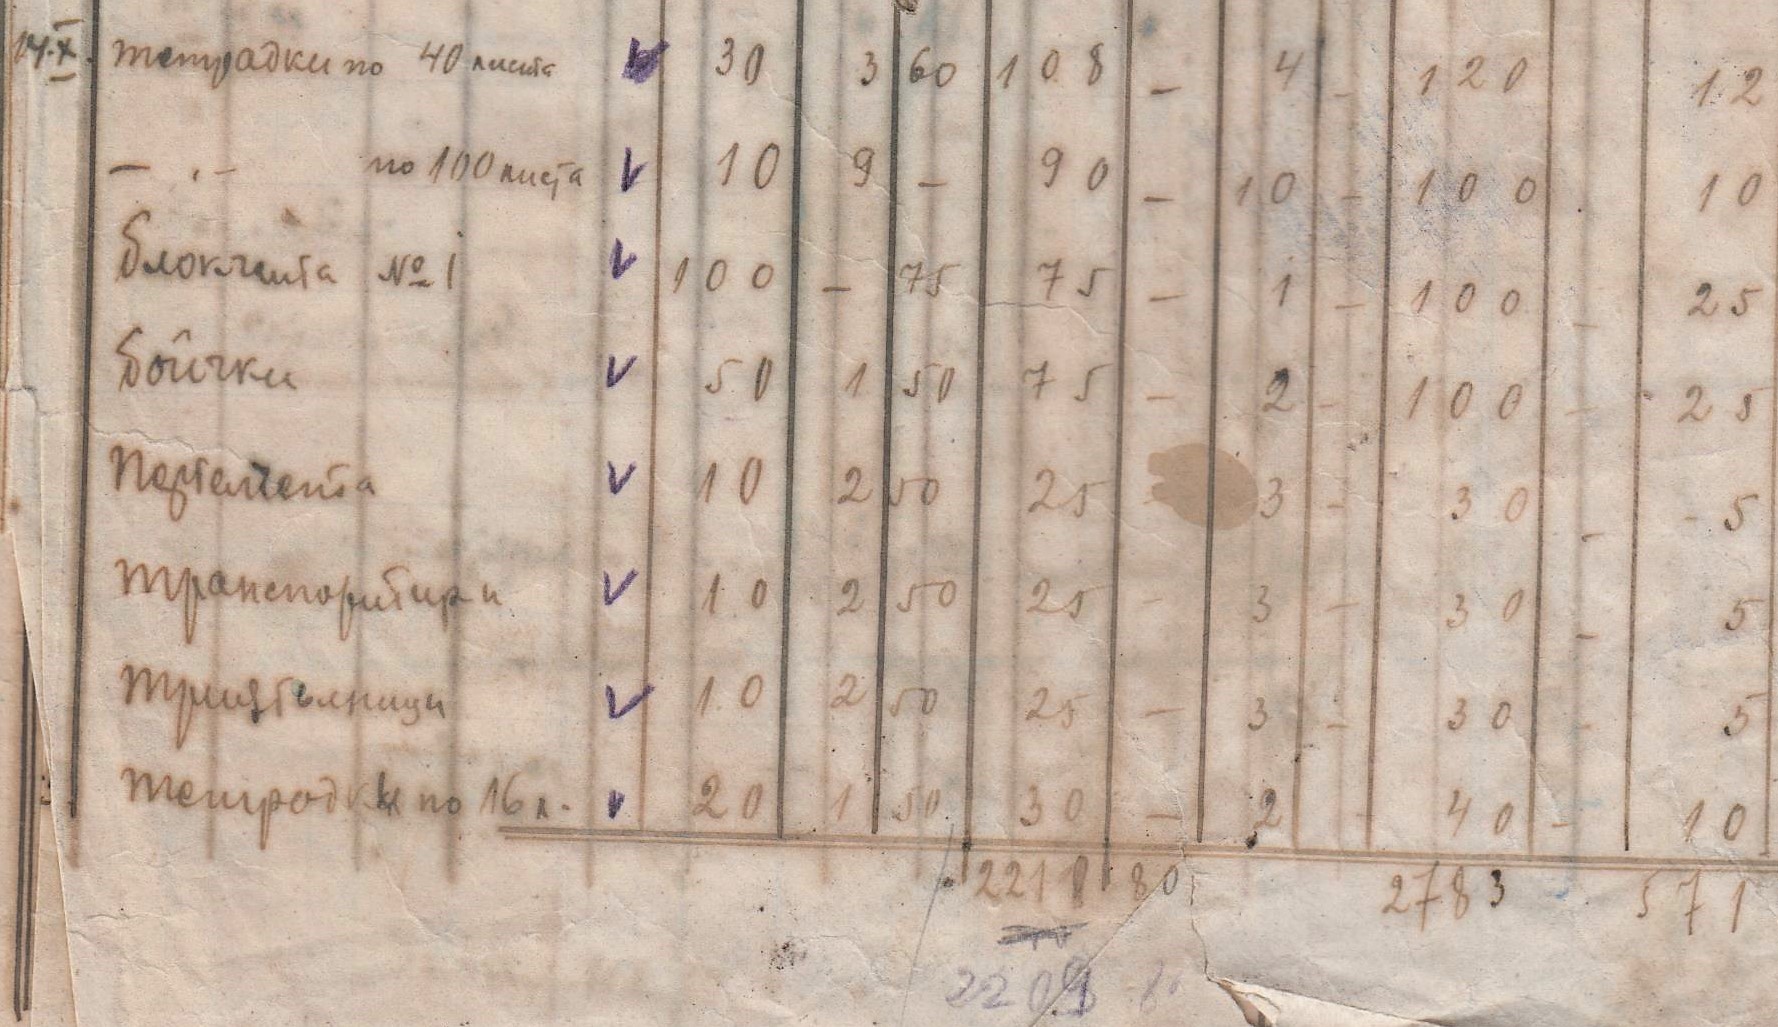 14.X. тетрадки по 40 листа V 30 3 60 108 - 4 - 120 12
- " - по 100 листа V 10 9 - 90 - 10 - 100 - 10
блокчета № 1 V 100 - 75 75 - 1 - 100 - 25
бойчки V 50 1 50 75 - 2 - 100 - 25
V 10 2 50 25 - 3 - 30 - 5
транспортири V 10 2 50 25 - 3 - 30 - 5
триъгълници V 10 2 50 25 - 3 - 30 - 5
тетрадки по 16 л. V 20 1 50 30 - 2 - 40 - 10
80 2783 571